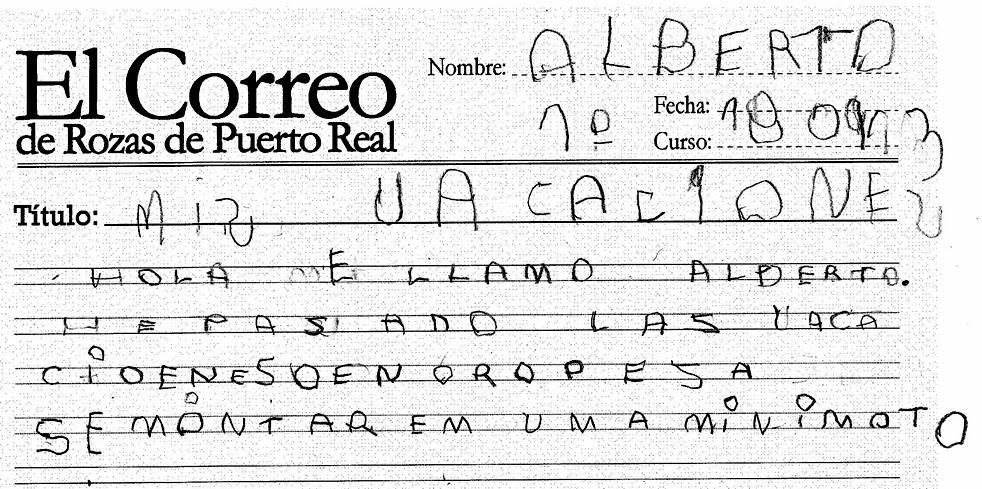 El Correo
de Rozas de Puerto Real
Nombre: ALBERTO
1º
Fecha: 18 09 13
Curso:
Título: MIS VACACIONES
HOLA ME LLAMO ALBERTO.
HE PASADO LAS VACA
CIOENES EN OROPESA
SE MONTAR EM UMA MINIMOTO